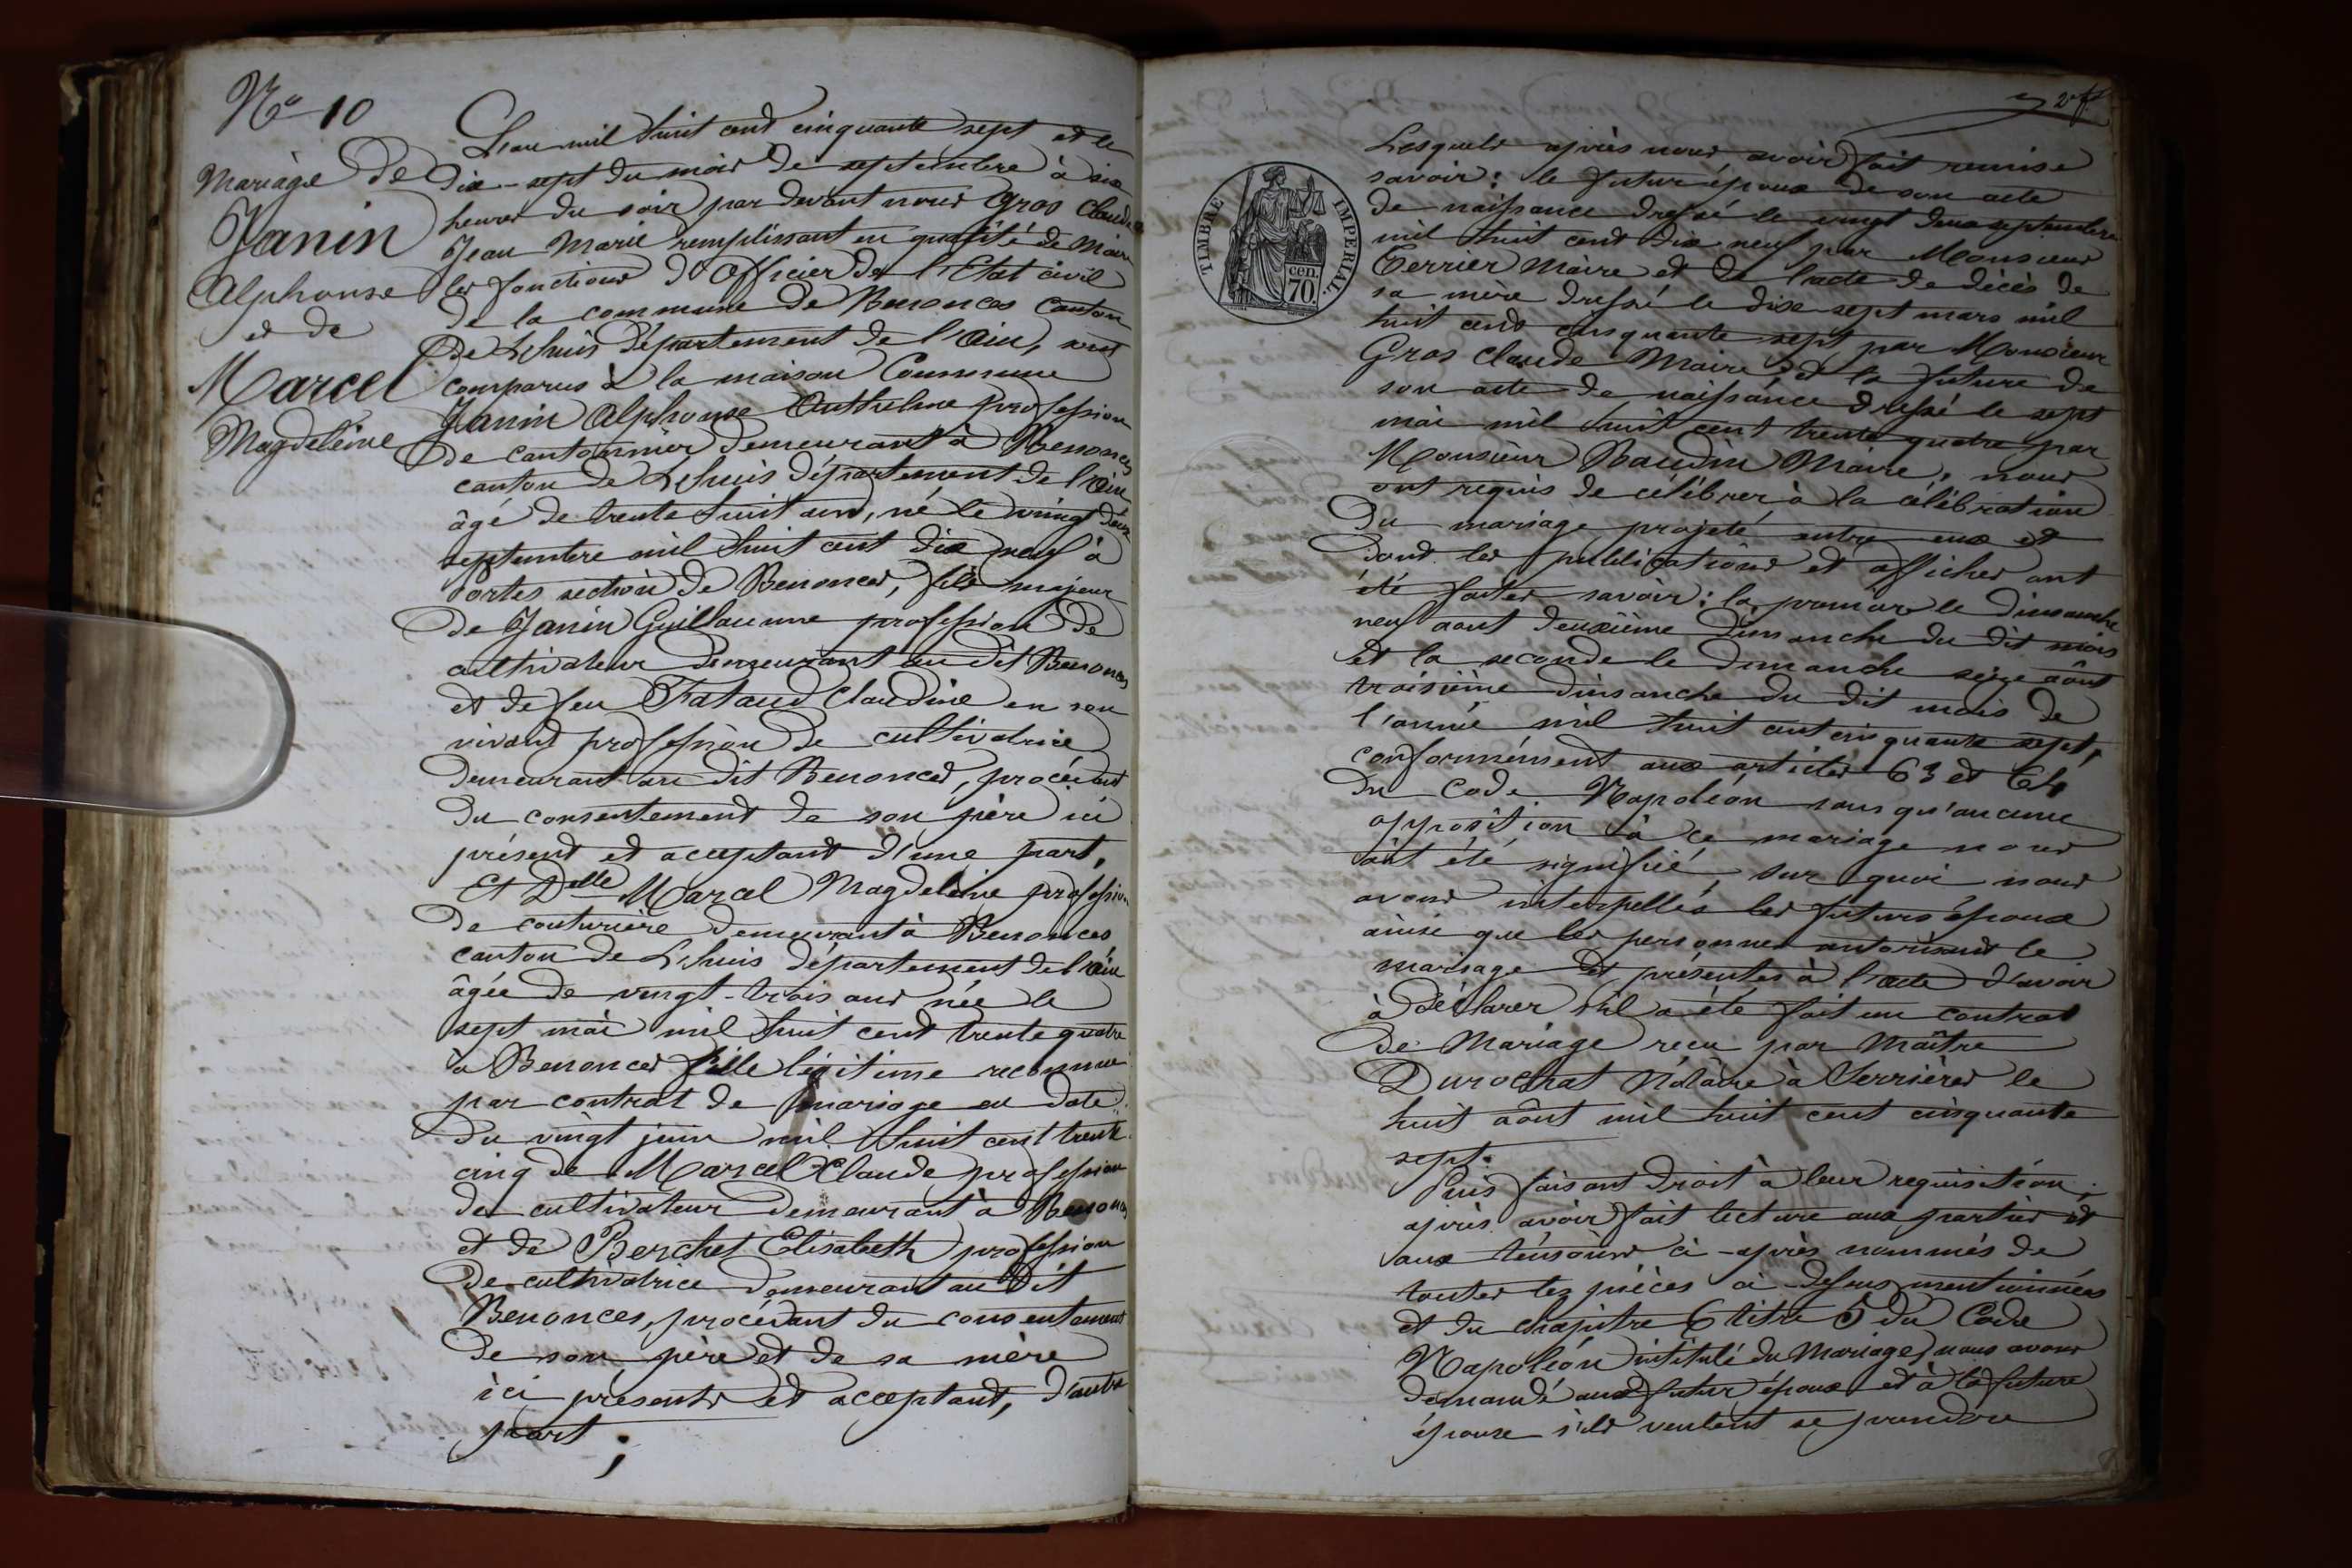 N° 10
Mariage de
Janin
Alphonse
et de
Marcel
Magdeleine
L'an mil huit cent cinquante sept et le
dix-sept du mois de septembre à six
heures du soir par devant nous Gros Claude
Jean Marie remplissant en qualité de Maire
les fonctions d'Officier de l'Etat civil
de la commune de Benonces Canton
de Lhuis département de l'Ain, sont
comparus à la maison Commune
Janin Alphonse Anthelme profession
de cantonnier demeurant à Benonces
canton de Lhuis département de l'Ain
âgé de trente huit ans, né le vingt deux
septembre mil huit cent dix neuf à
Portes section de Benonces, fils majeur
de Janin Guillaume profession de
cultivateur demeurant au dit Benonces
et de feu Claudine en son
vivant profession de cultivatrice
demeurant au dit Benonces, procédant
du consentement de son père ici
présent et acceptant d'une part,
Et Delle Marcel Magdeleine profession
de couturière demeurant à Benonces
canton de Lhuis département de l'Ain
âgée de vingt-trois ans née le
sept mai mil huit cent trente quatre
à Benonces fille légitime reconnue
par contrat de mariage en date
du vingt juin mil huit cent trente
cinq de Marcel Claude profession
de cultivateur demeurant à Benonces
et de Berchet Elisabeth profession
de cultivatrice demeurant au dit
Benonces, procédant du consentement
de son père et de sa mère
ici présents et acceptant, d'autre
part;
TIMBRE IMPERIAL.
cen.
70.
Lesquels après nous avoir fait remise
savoir: le futur époux de son acte
de naissance dressé le vingt deux septembre
mil huit cent dix neuf par Monsieur
Terrier Maire et de l'acte de décès de
sa mère dressé le dix sept mars mil
huit cent cinquante sept par Monsieur
Gros Claude Maire, et la future de
son acte de naissance dressé le sept
mai mil huit cent trente quatre par
Monsieur Baudin Maire, nous
ont requis de célébrer, à la célébration
du mariage projeté entre eux et
dont les publications et affiches ont
été faites savoir: la première le dimanche
neuf aout deuxième dimanche du dit mois
et la seconde le dimanche seize août
troisième dimanche du dit mois de
l'année mil huit cent cinquante sept,
conformément aux articles 63 et 64
du Code Napoléon sans qu'aucune
opposition à ce mariage nous
ait été signifié, sur quoi nous
avons interpellés les futurs époux
ainsi que les personnes autorisant le
mariage et présentes à l'acte d'avoir
à déclarer s'il a été fait un contrat
de Mariage reçu par Maître
Durochat Notaire à Serrières le
huit août mil huit cent cinquante
sept.
Puis faisant droit à leur requisition,
après avoir fait lecture aux parties et
aux témoins ci-après nommés de
toutes les pièces ci-dessus mentionnées
et du chapitre 6 titre 5 du Code
Napoléon intitulé du Mariage, nous avons
demandé aux futur époux et à la future
épouse s'ils veulent se prendre